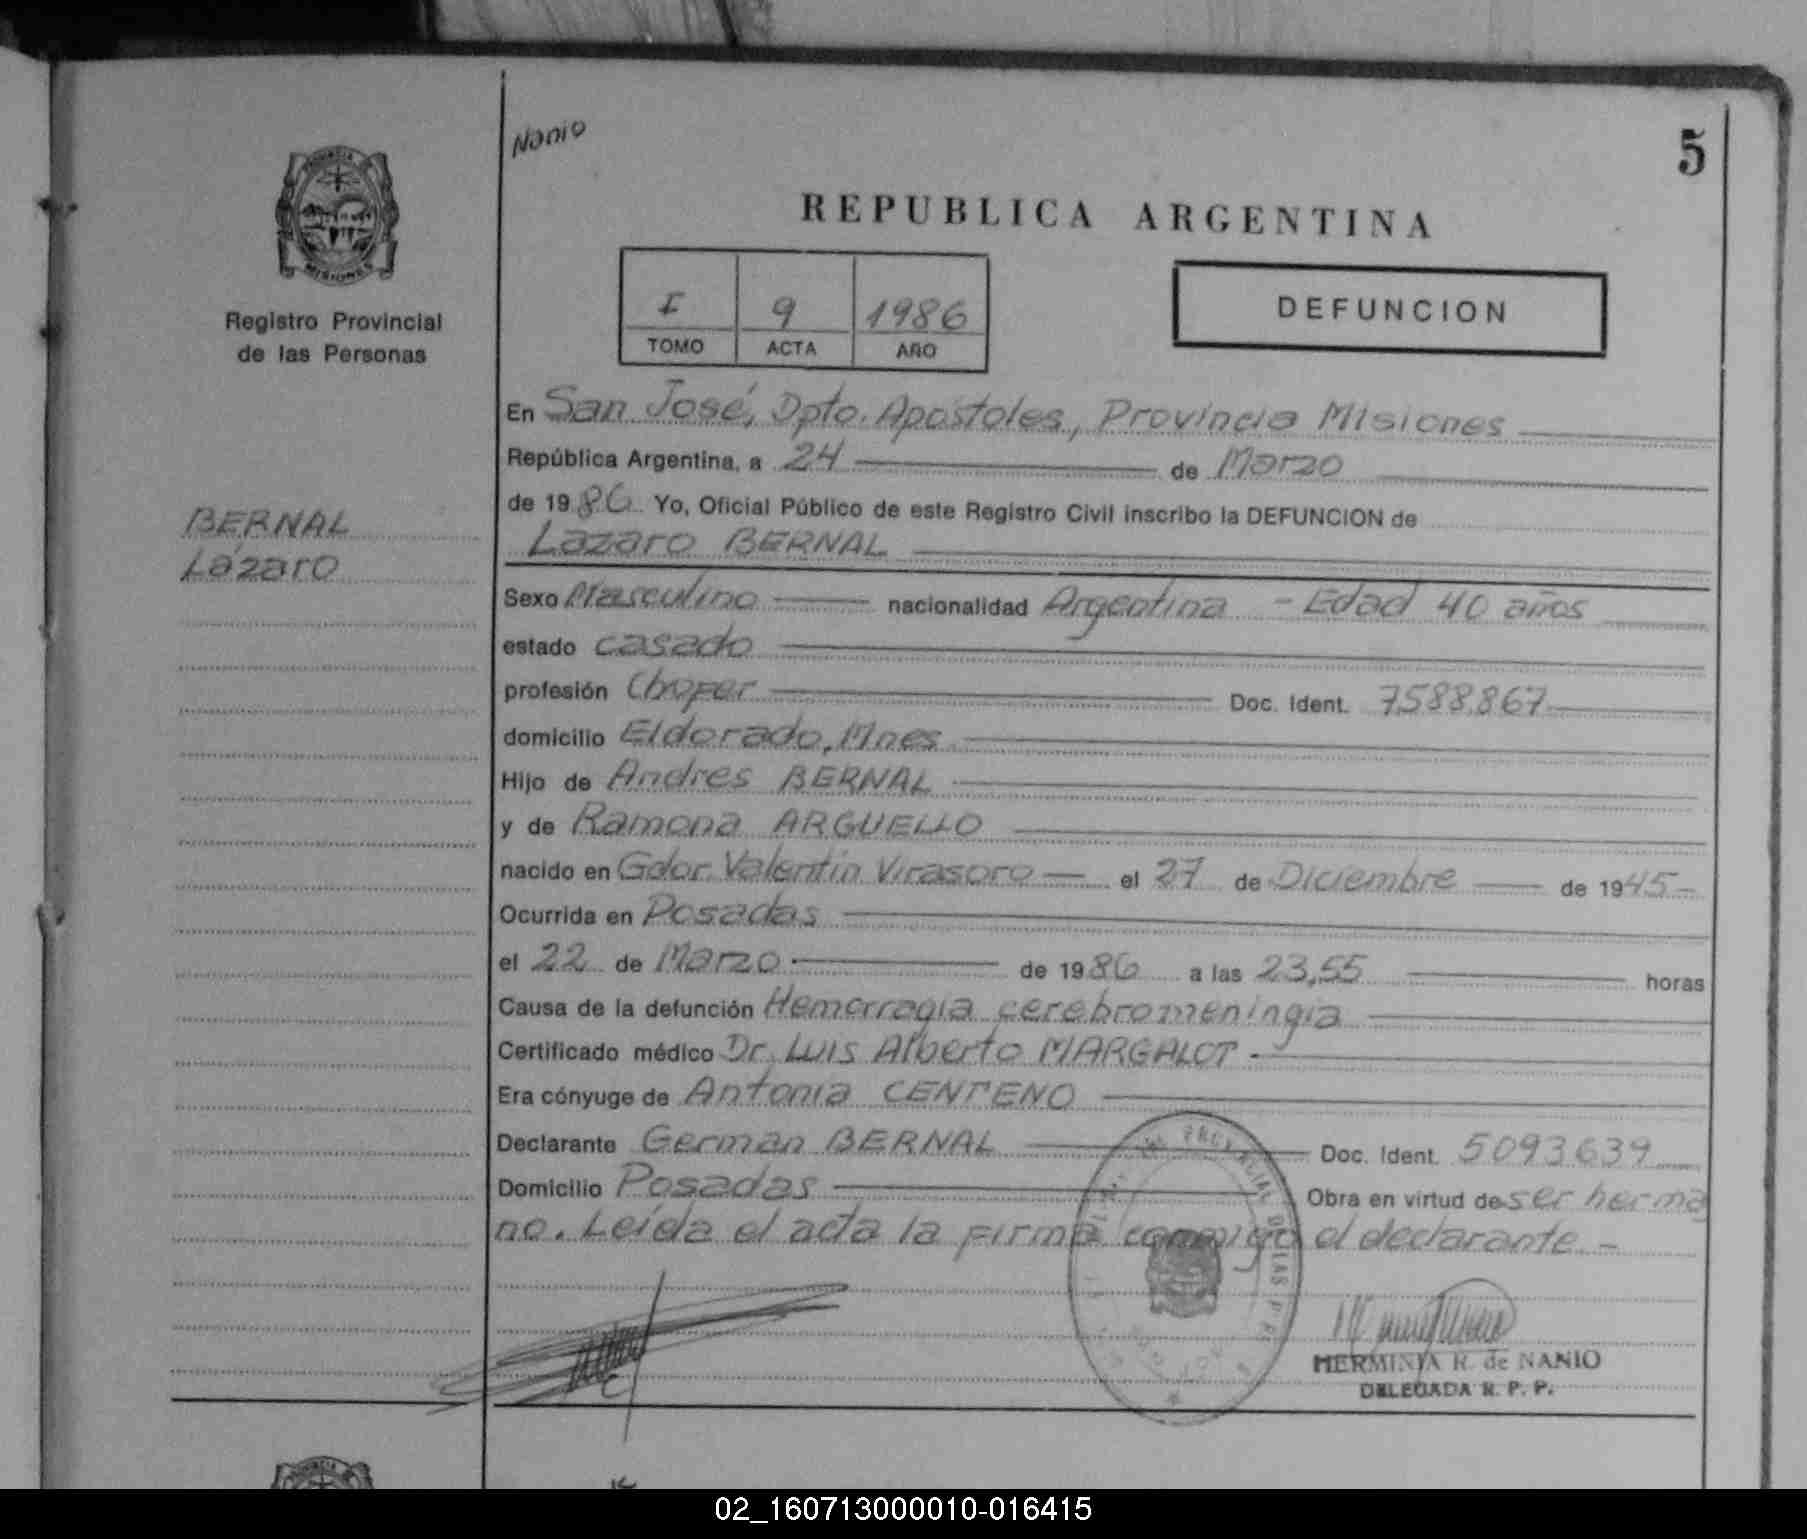 Nanio
5
PROVINCIA DE
MISIONES
Registro Provincial
de las Personas
REPUBLICA ARGENTINA
I 9 1986
TOMO ACTA AÑO
DEFUNCION
BERNAL
Lázaro
En San José, Dpto. Apóstoles, Provincia Misiones
República Argentina, a 24 de Marzo
de 1986 Yo, Oficial Público de este Registro Civil inscribo la DEFUNCION de
Lázaro BERNAL
Sexo Masculino nacionalidad Argentina - Edad 40 años
estado casado
profesión Chofer Doc. Ident. 7.588.867
domicilio Eldorado, Mnes
Hijo de Andres BERNAL
y de Ramona ARGUELLO
nacido en Gdor. Valentín Virasoro el 27 de Diciembre de 1945-
Ocurrida en Posadas
el 22 de Marzo de 1986 a las 23,55 horas
Causa de la defunción Hemorragia cerebromeningia
Certificado médico Dr. Luis Alberto MARGALOT
Era cónyuge de Antonia CENTENO
Declarante German BERNAL Doc. Ident. 5093639
Domicilio Posadas Obra en virtud de ser herma
no. Leída el acta la firma conmigo el declarante -
HERMINIA R. de NANIO
DELEGADA R. P. P.
02_160713000010-016415